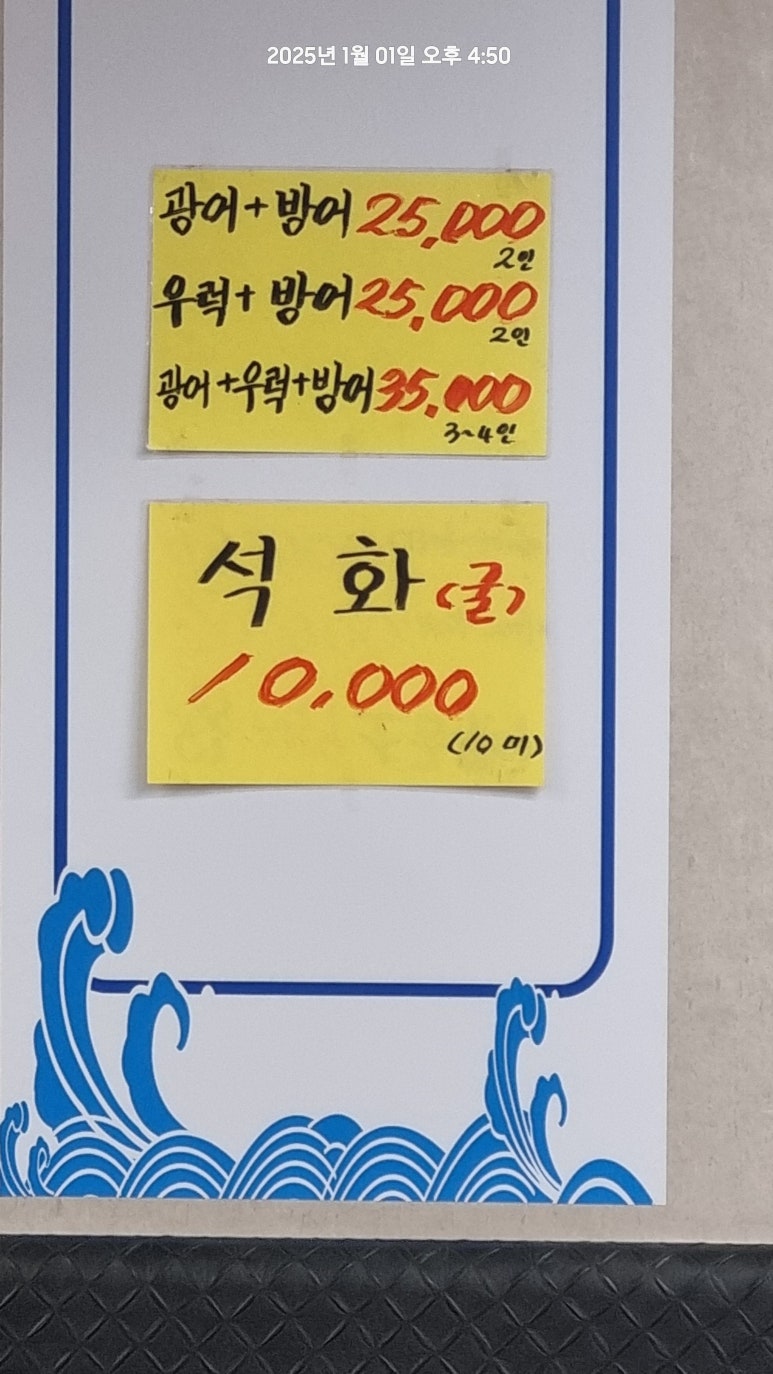 2025년 1월 01일 오후 4:50
광어+방어 25,000
2인
우럭+ 방어 25,000
2인
광어+우럭+방어 35,000
3~4인
석 화 (굴)
10,000
(10 미)